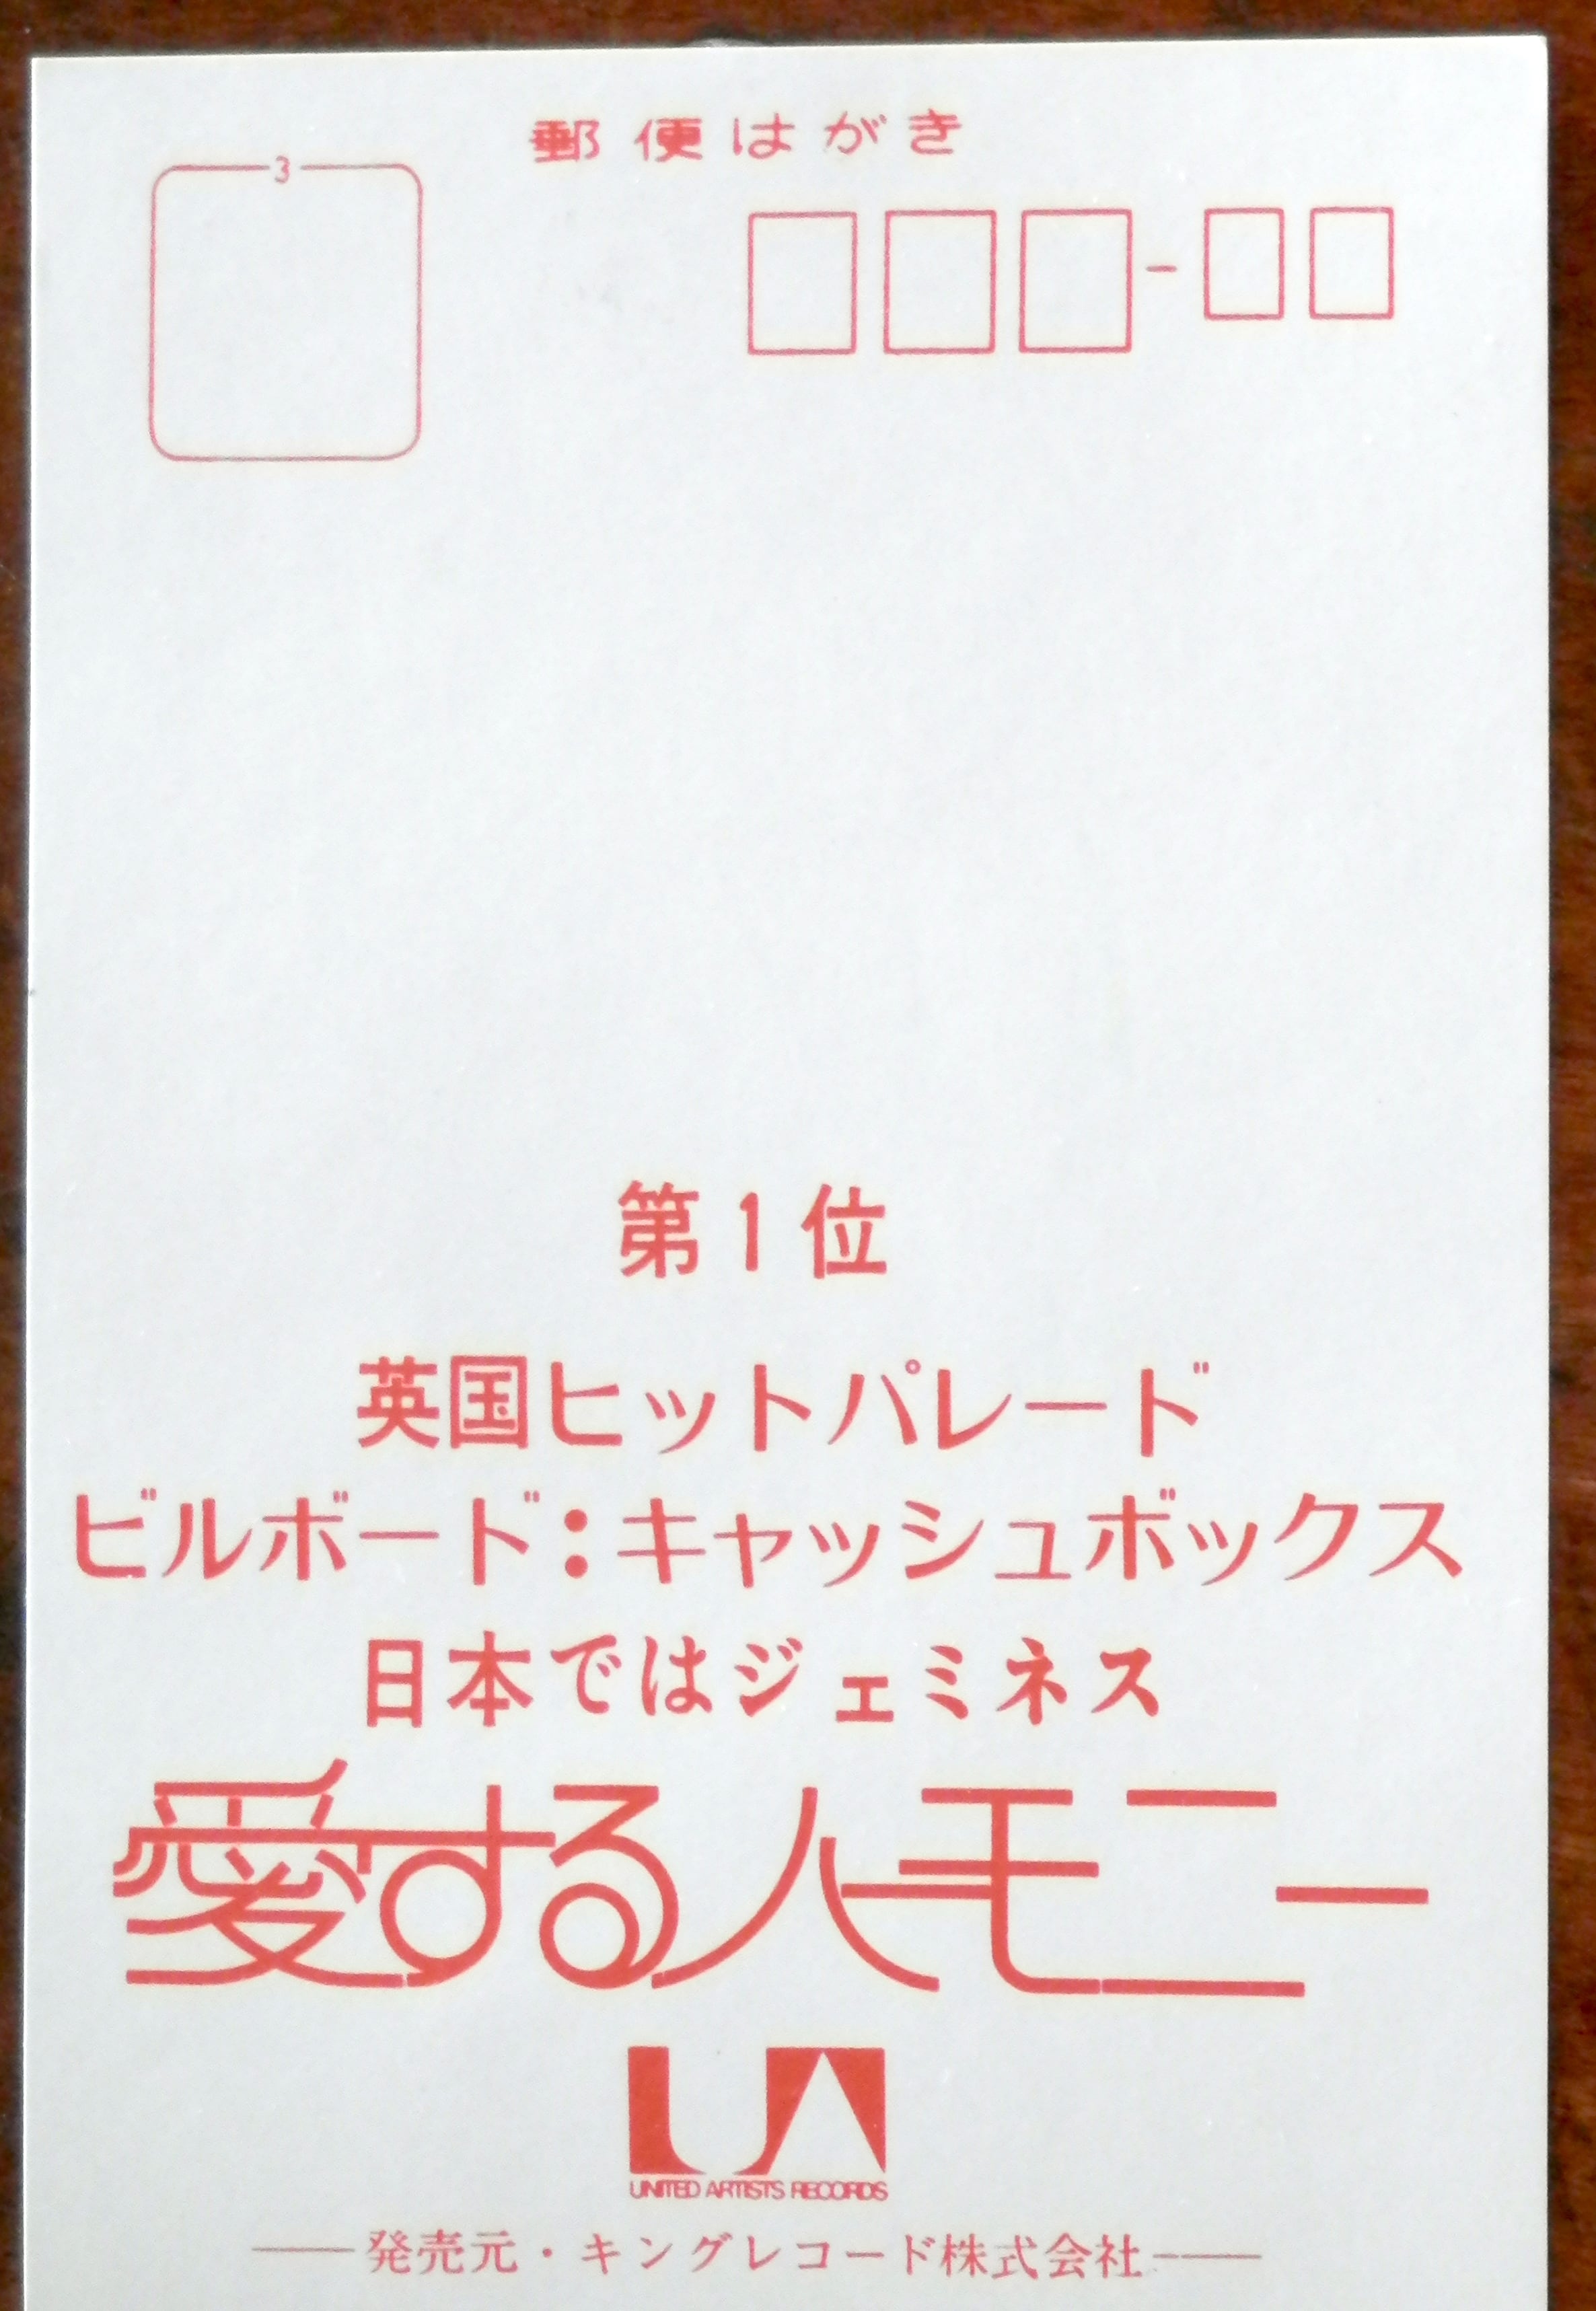 郵便はがき
3
第1位
英国ヒットパレード
ビルボード:キャッシュボックス
日本ではジェミネス
愛するハーモニー
UA
UNITED ARTISTS RECORDS
発売元・キングレコード株式会社